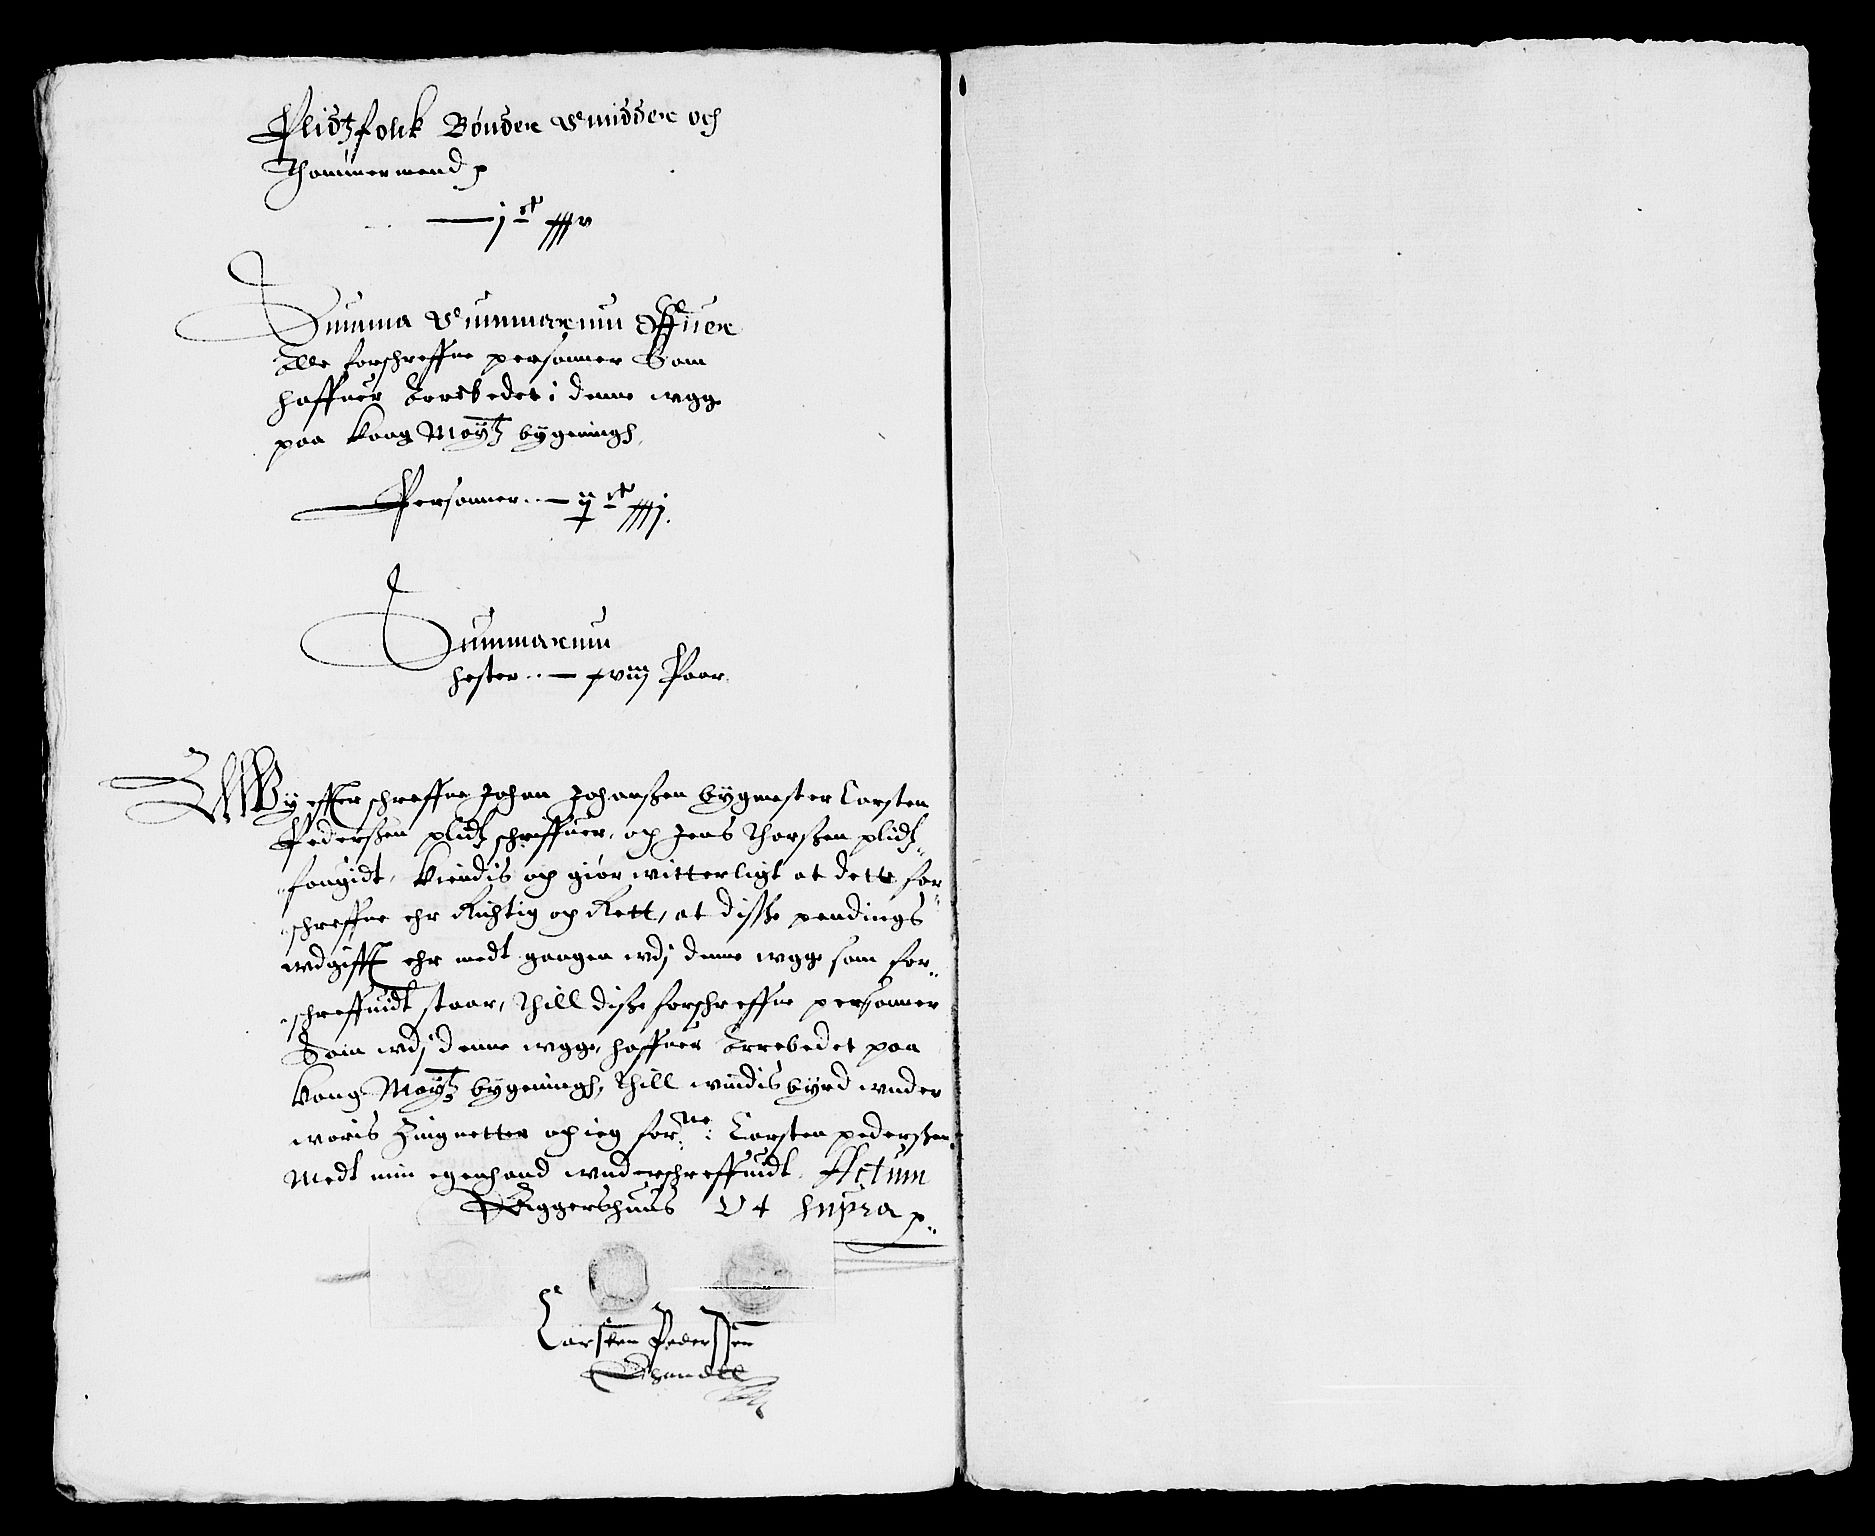 Plidtzfolck Bønder Smidder och
Thømmermend p
j ct xxxv
Summa Summarum Offuer
Alle forschreffne personner Som
haffuer Arrebedet i denne wgge
paa Kong Maytz bygeningh
Personner - - ij ct xxxxj.
Summarum
hester - - xviij Paar
Wy effterschreffne Johan Johanßen bygmester Carsten
Pederßen plidtz schriffuer, och Jens Thorßen plidtz
fougidt, Kiendis och giør witterligt at dette for
schreffne ehr Richtig och Rett, at disße pendings
wdgifft ehr medt gangen wdj denne wgge som for
schreffuidt staar, Thill disße forschreffne personner
Som wdj denne wgge, haffuer Arrebedet paa
Kong Maytz bygeningh, Thill windisbyrd wnder
woris Zingnetter och ieg forne: Carsten pederßen
Medt min egenhand wnderschreffuidt. Actum
Aggershuus Ut supra p
Carsten Pederssen
Ehandtt